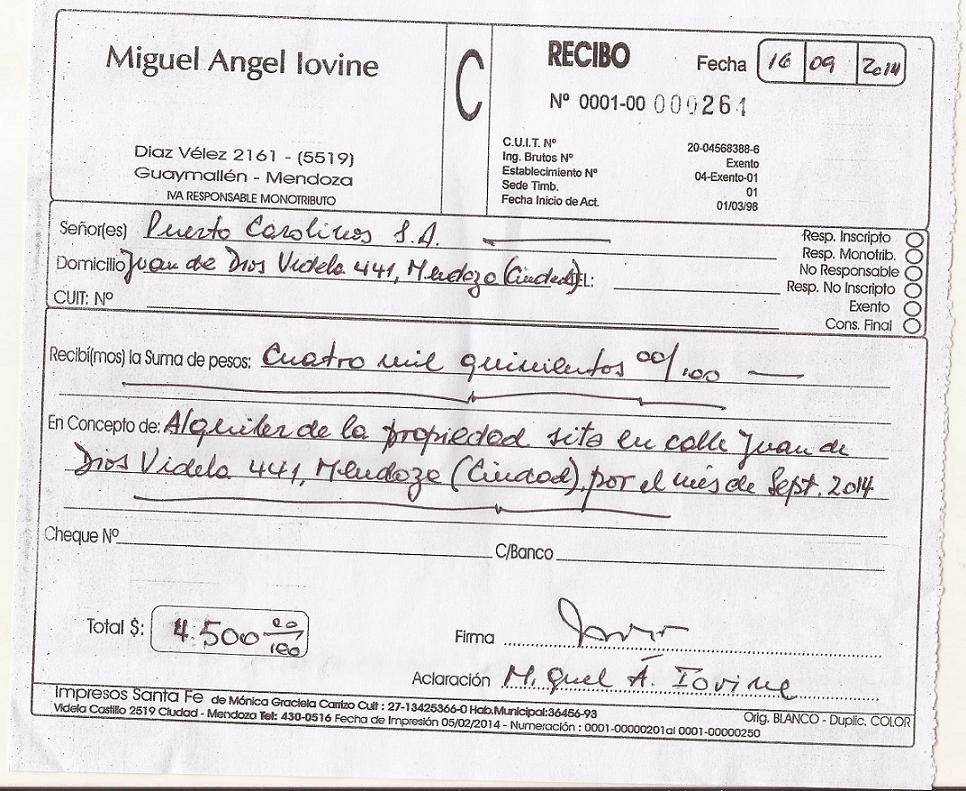 Miguel Angel Iovine
C
RECIBO
Fecha 16 09 2014
Nº 0001-00 000261
Diaz Vélez 2161 - (5519)
Guaymallén - Mendoza
IVA RESPONSABLE MONOTRIBUTO
C.U.I.T. Nº 20-04568388-6
Ing. Brutos Nº Exento
Establecimiento Nº 04-Exento-01
Sede Timb. 01
Fecha Inicio de Act. 01/03/98
Señor(es) Puerto Carolinos S.A.
Domicilio Juan de Dios Videla 441, Mendoza (Ciudad) EL:
CUIT: Nº
Resp. Inscripto
Resp. Monotrib.
No Responsable
Resp. No Inscripto
Exento
Cons. Final
Recibí(mos) la Suma de pesos: Cuatro mil quinientos 00/100
En Concepto de: Alquiler de la propiedad sita en calle Juan de
Dios Videla 441, Mendoza (Ciudad), por el més de Sept. 2014
Cheque Nº C/Banco
Total $: 4.500 00/100
Firma
Aclaración Miguel A. Iovine
Impresos Santa Fe de Mónica Graciela Carrizo Cuit : 27-13425366-0 Hab.Municipal:36456-93
Videla Castillo 2519 Ciudad - Mendoza Tel: 430-0516 Fecha de Impresión 05/02/2014 - Numeración : 0001-00000201al 0001-00000250
Orig. BLANCO - Duplic. COLOR